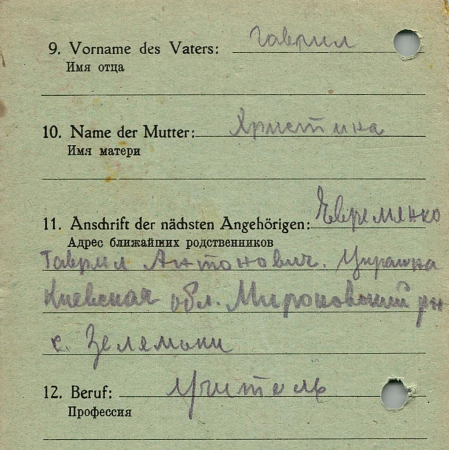 9. Vorname des Vaters: Гаврил
Имя отца
10. Name der Mutter: Христина
Имя матери
11. Anschrift der nächsten Angehörigen: Евременко
Адрес ближайших родственников
Гаврил Антонович. Украина
Киевская обл. Мироновский рн
с. Зеленьки
12. Beruf: учитель
Профессия